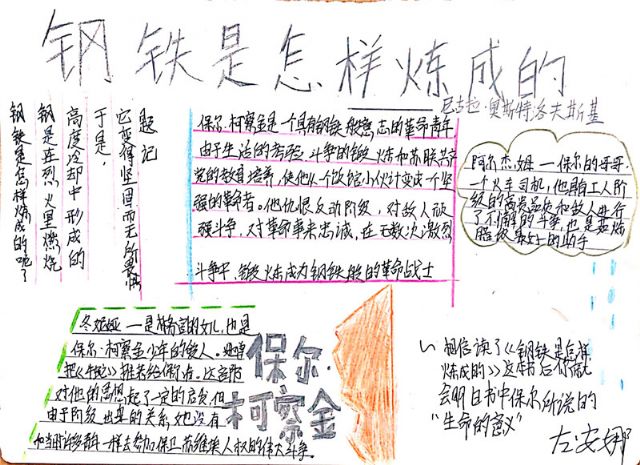 钢铁是怎样炼成的
尼古拉·奥斯特洛夫斯基
题记
它变得坚固而无所畏惧
于是,
高度冷却中形成的
钢是在烈火里燃烧
钢铁是怎样炼成的呢?
保尔·柯察金是一个具有钢铁般意志的革命青年
由于生活的考验 斗争的锻炼和苏联共产
党的教育培养,使他从一个饭馆小伙计变成一个坚
强的革命者。他仇恨反动阶级,对敌人顽
强斗争,对革命事来忠诚,在无数次激烈
斗争中,锻炼成为钢铁般的革命战士
阿尔杰姆——保尔的哥哥
一个火车司机,他
工人阶
级的高贵品质和敌人进行
了不懈的斗争,也是
最
的助手
冬妮娅——是
官的女儿,也是
保尔·柯察金少年的
人。她曾
把《牛虻》推荐给保尔,这者
对他的思想起了一定的启发,但
由于阶级出身的关系,她没有
和当时许多青年一样去参加保卫苏维埃人权的伟大斗争
保尔·
柯察金
相信读了《钢铁是怎样
炼成的》这本书后你就
会明白书中保尔所说的
“生命的意义”
左安娜